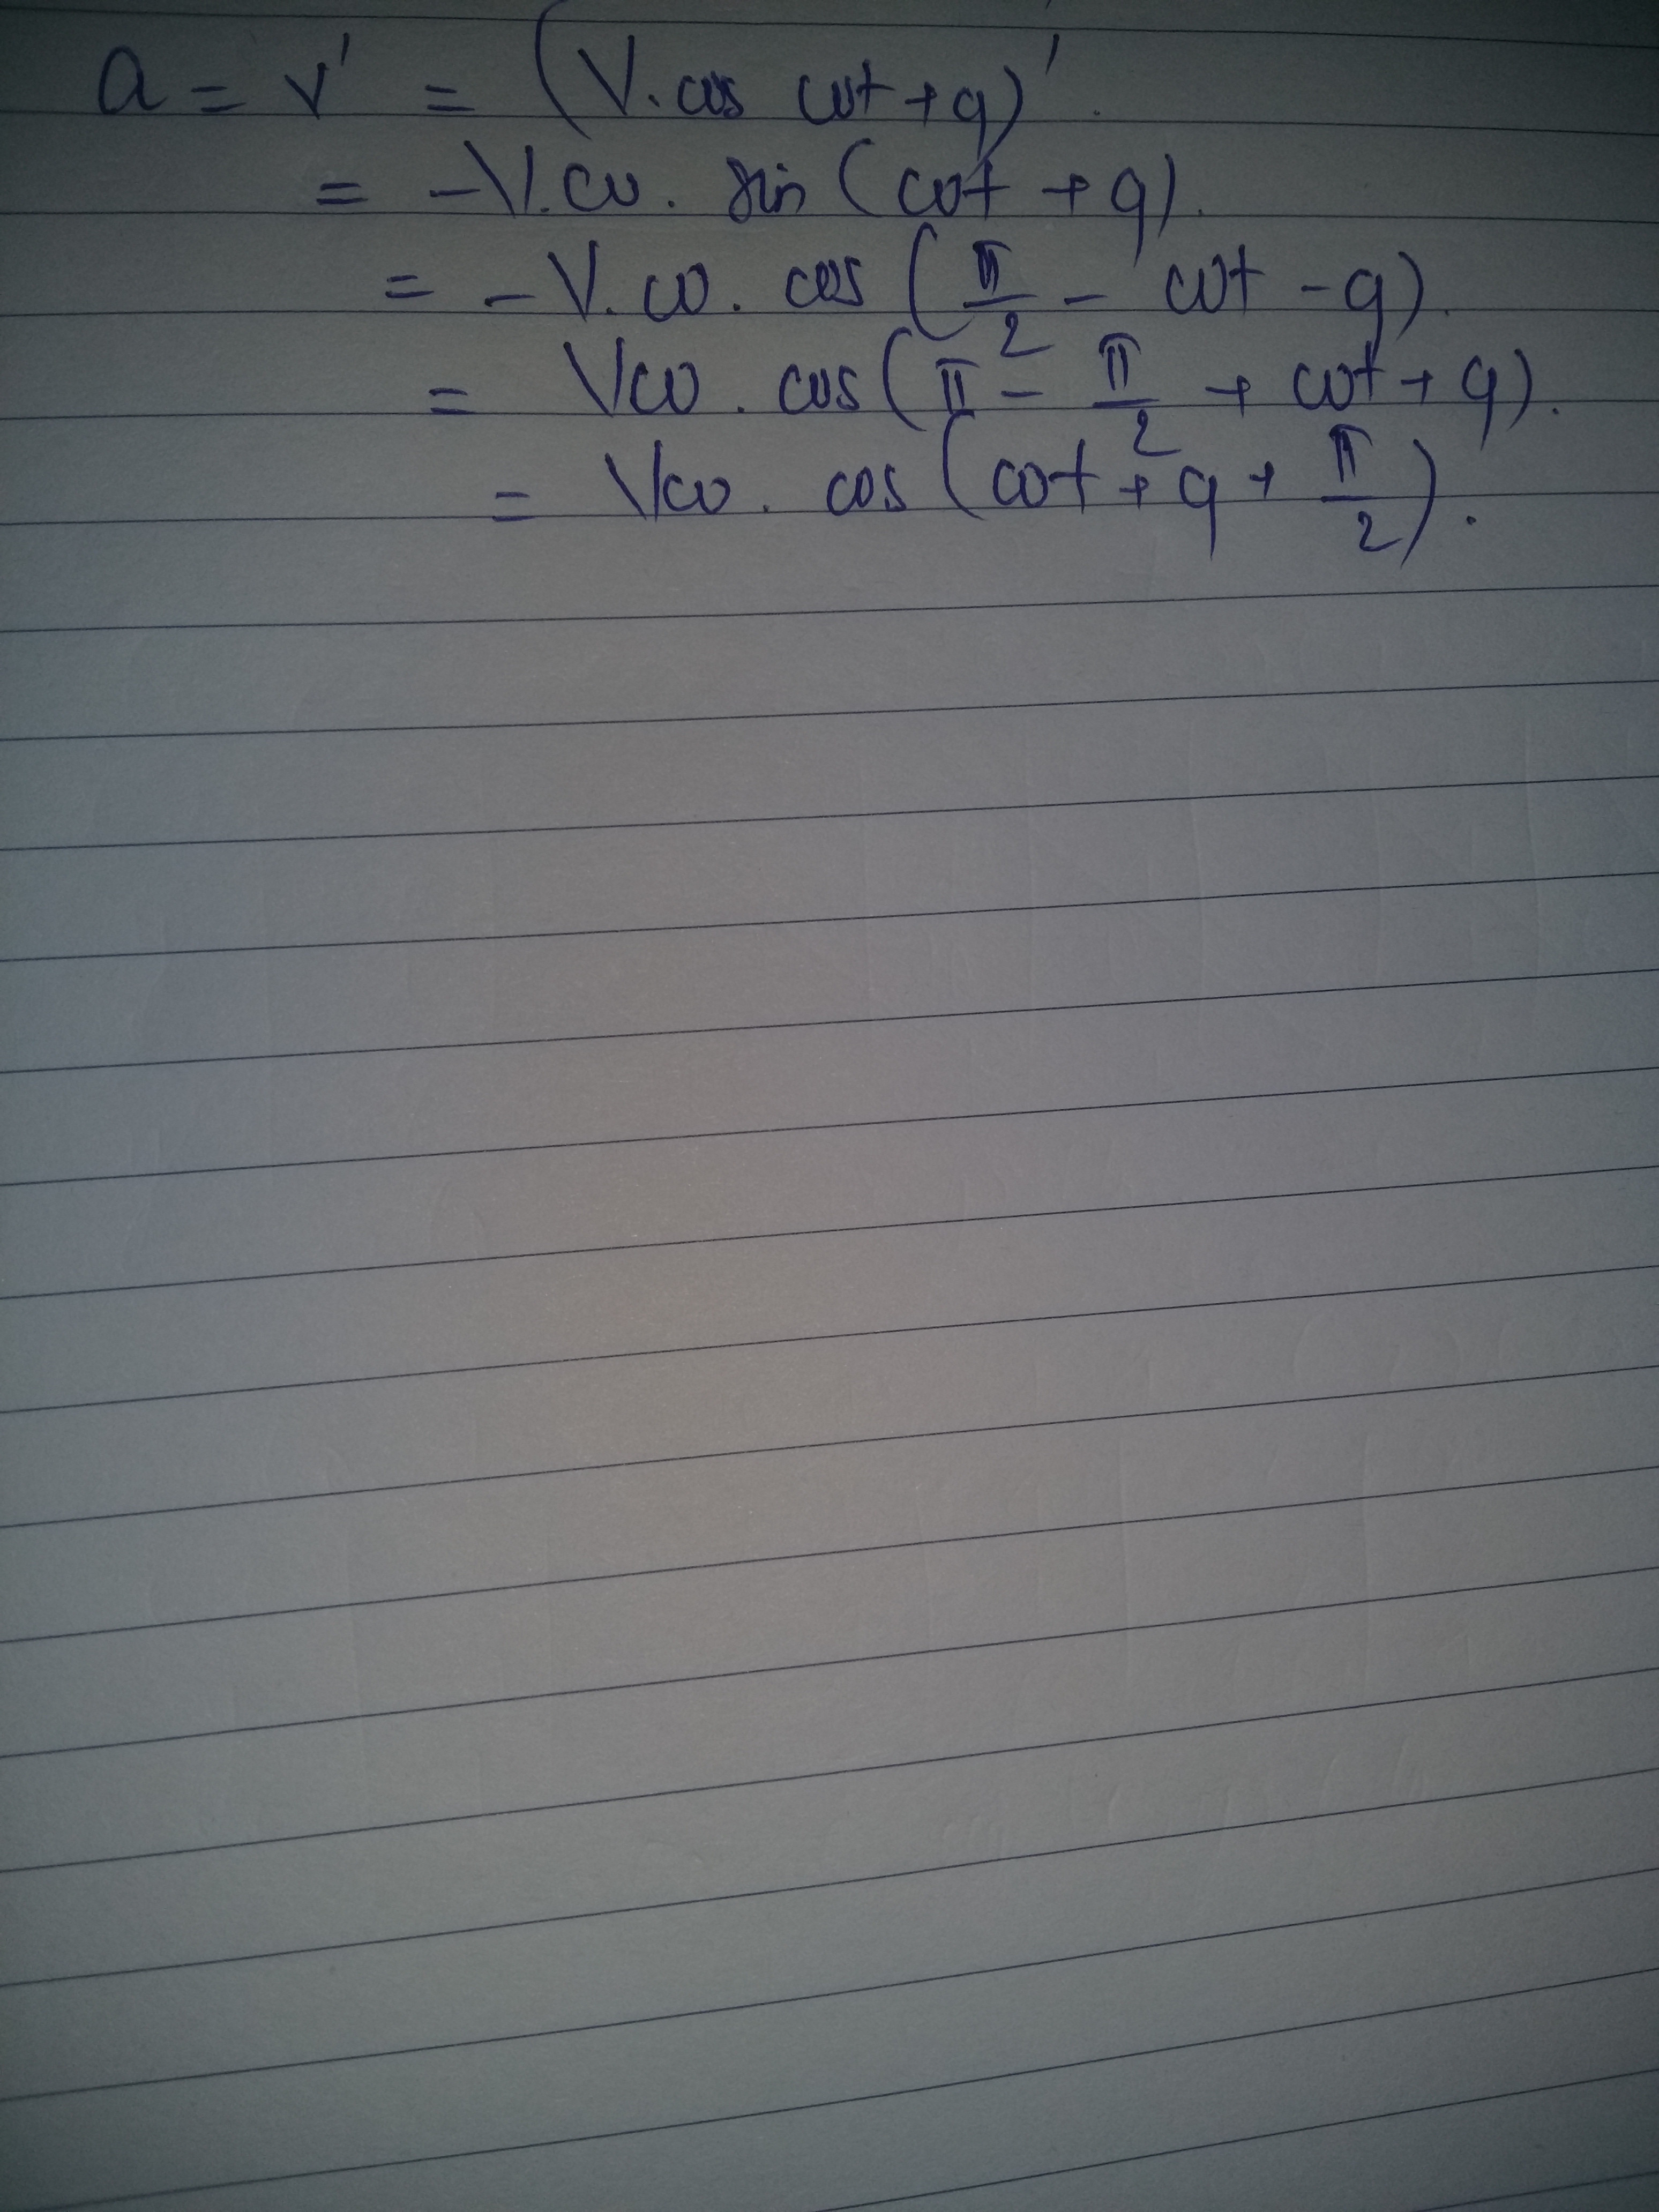 a = v' = (V. cos ωt + φ)'.
= -V.ω. sin (ωt + φ).
= - V.ω. cos (π/2 - ωt - φ).
= Vω. cos (π - π/2 + ωt + φ).
= Vω. cos (ωt + φ + π/2).